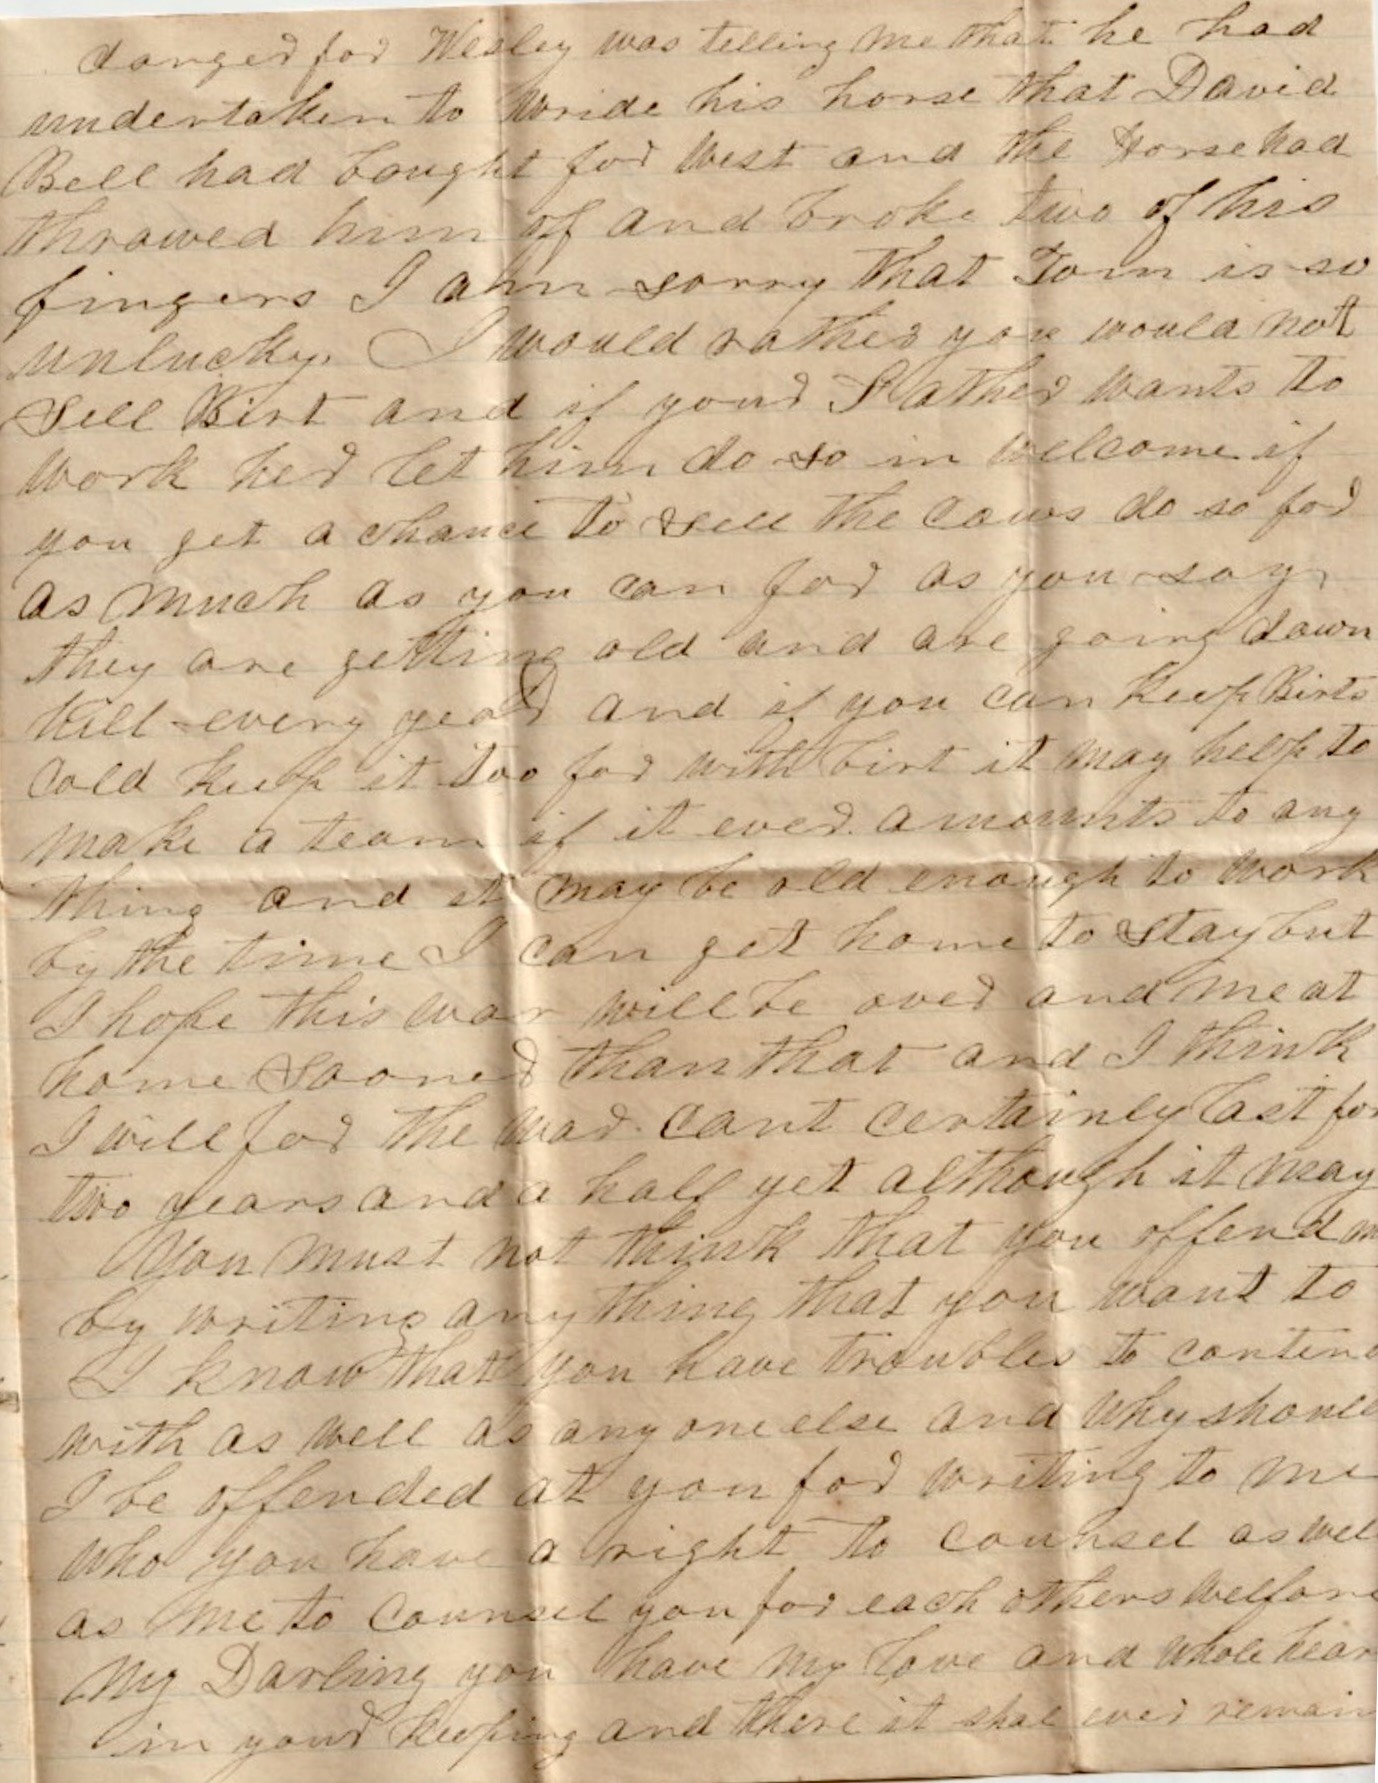 danged for Wesley was telling me that he had
undertaken to wride his horse that David
Bell had bought for West and the Horse had
throwed him of and broke two of his
fingers I ahm sorry that Tom is so
unlucky. I would rather you would not
Sell Birt and if your Father wants to
work her let him do so in welcome if
you get a chance to sell the Cows do so for
as much as you can for as you say
they are getting old and are going down
hill every year and if you can keep Birts
Cold keep it too for with birt it may help to
make a team if it ever amounts to any
thing and it may be old enough to work
by the time I can get home to stay but
I hope this war will be over and me at
home Sooner than that and I think
I will for the war cant certainly last for
two years and a half yet although it may
You must not think that you offend m
by writing any thing that you want to
I know that you have troubles to conten
with as well as any one else and why should
I be offended at you for writing to me
who you have a right to counsel as wel
as me to Counsel you for each others welfare
My Darling you have my love and whole hear
in your keeping and there it shal ever remain